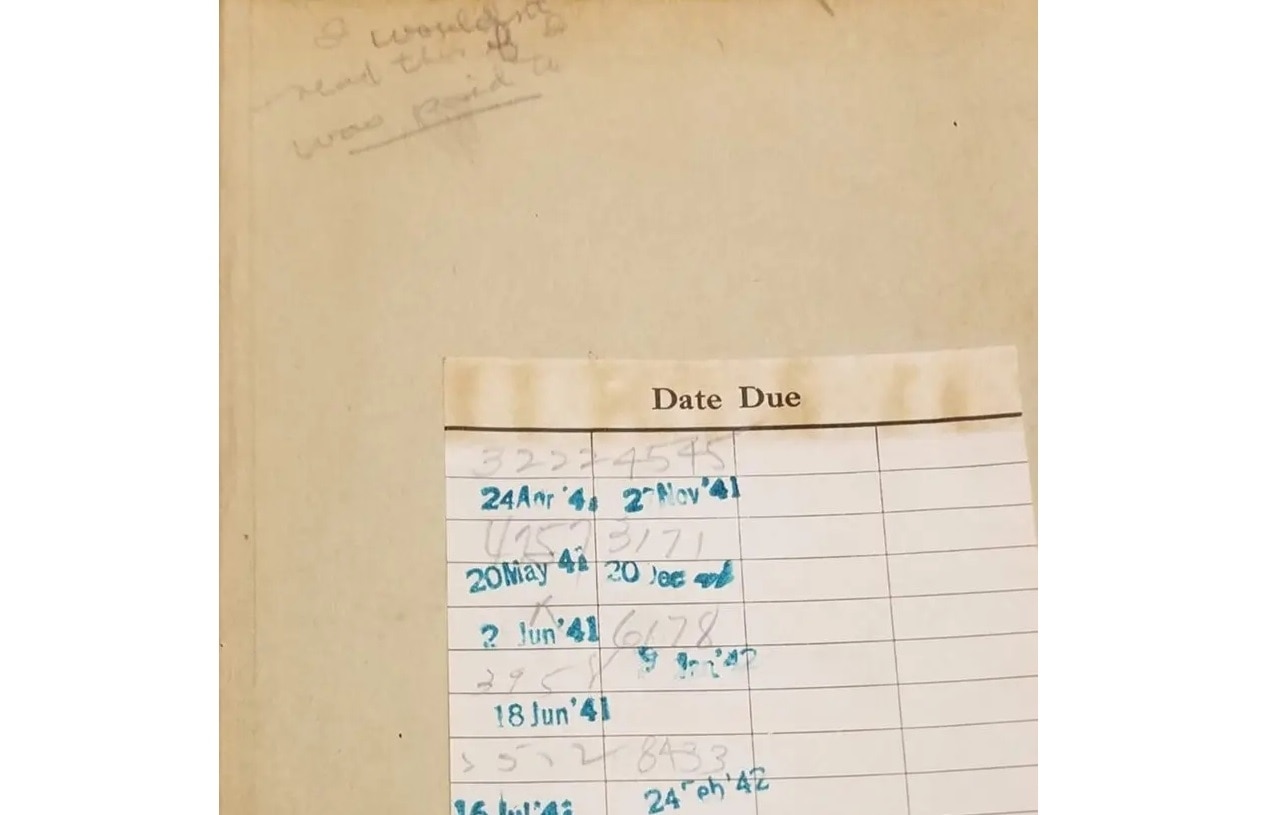 I wouldn't
read this if I
was paid to
Date Due
3222 4545
24 Apr '41 2 Nov '41
3171
20 May '41 20 Dec
2 Jun '41 6178
9 Jan '42
18 Jun '41
8433
24 Feb '42
16 Jul '41